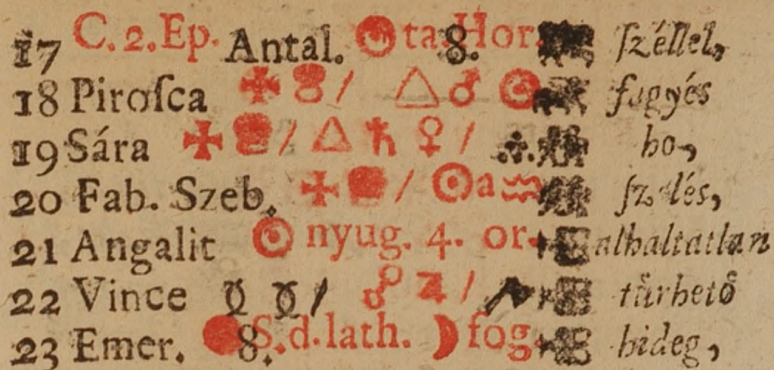 17 C. 2. Ep. Antal. ☉ ta. Hor. 8. ſzéllel,
18 Piroſca ✠ / △ ♂ ☉ fagyés
19 Sára ✠ / △ ♄ ♀ / ho,
20 Fab. Szeb. ✠ / ☉ a ♒ ſzélés,
21 Angalit ☉ nyug. 4. or. alhaltatlan
22 Vince ☿ ☿ / ☍ ♃ / tűrhető
23 Emer. 8. S. d. lath. ☽ fog. hideg,